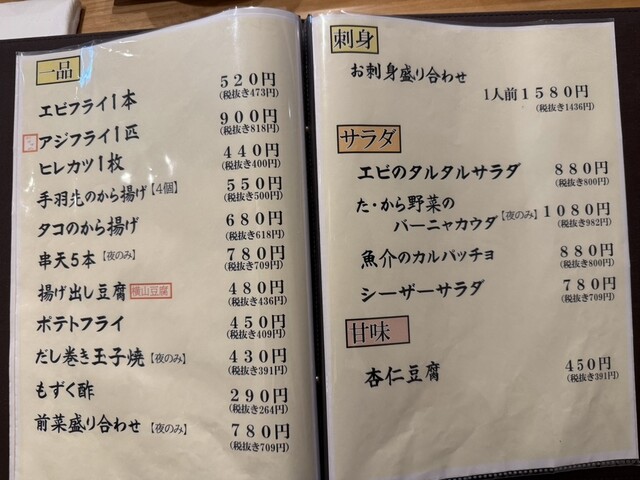 一品
エビフライ1本 520円
(税抜き473円)
アジフライ1匹 900円
(税抜き818円)
ヒレカツ1枚 440円
(税抜き400円)
手羽先のから揚げ【4個】 550円
(税抜き500円)
タコのから揚げ 680円
(税抜き618円)
串天5本【夜のみ】 780円
(税抜き709円)
揚げ出し豆腐 横山豆腐 480円
(税抜き436円)
ポテトフライ 450円
(税抜き409円)
だし巻き玉子焼【夜のみ】 430円
(税抜き391円)
もずく酢 290円
(税抜き264円)
前菜盛り合わせ【夜のみ】 780円
(税抜き709円)
刺身
お刺身盛り合わせ
1人前1580円
(税抜き1436円)
サラダ
エビのタルタルサラダ 880円
(税抜き800円)
た・から野菜の
バーニャカウダ【夜のみ】 1080円
(税抜き982円)
魚介のカルパッチョ 880円
(税抜き800円)
シーザーサラダ 780円
(税抜き709円)
甘味
杏仁豆腐 450円
(税抜き391円)